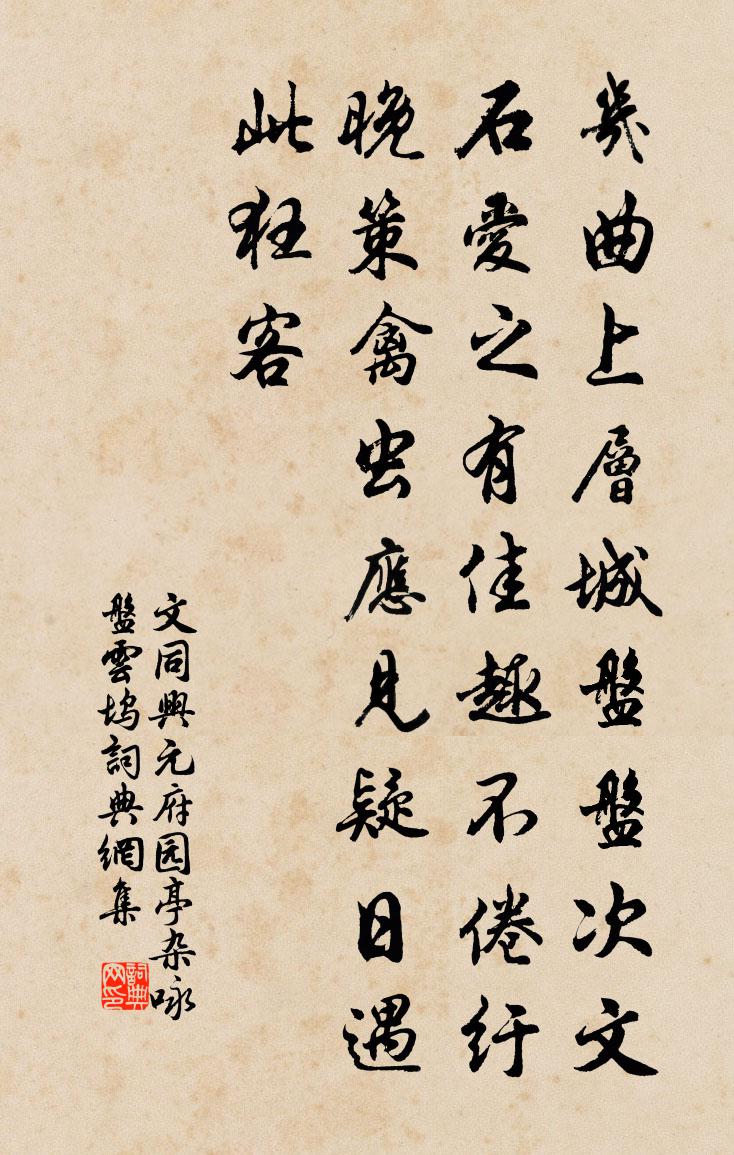 幾曲上層城盤盤次文
石愛之有佳趣不倦紆
晚策禽虫應見疑日遇
此狂客
文同興元府园亭杂咏
盤雲塢詞典網集
詞典网印